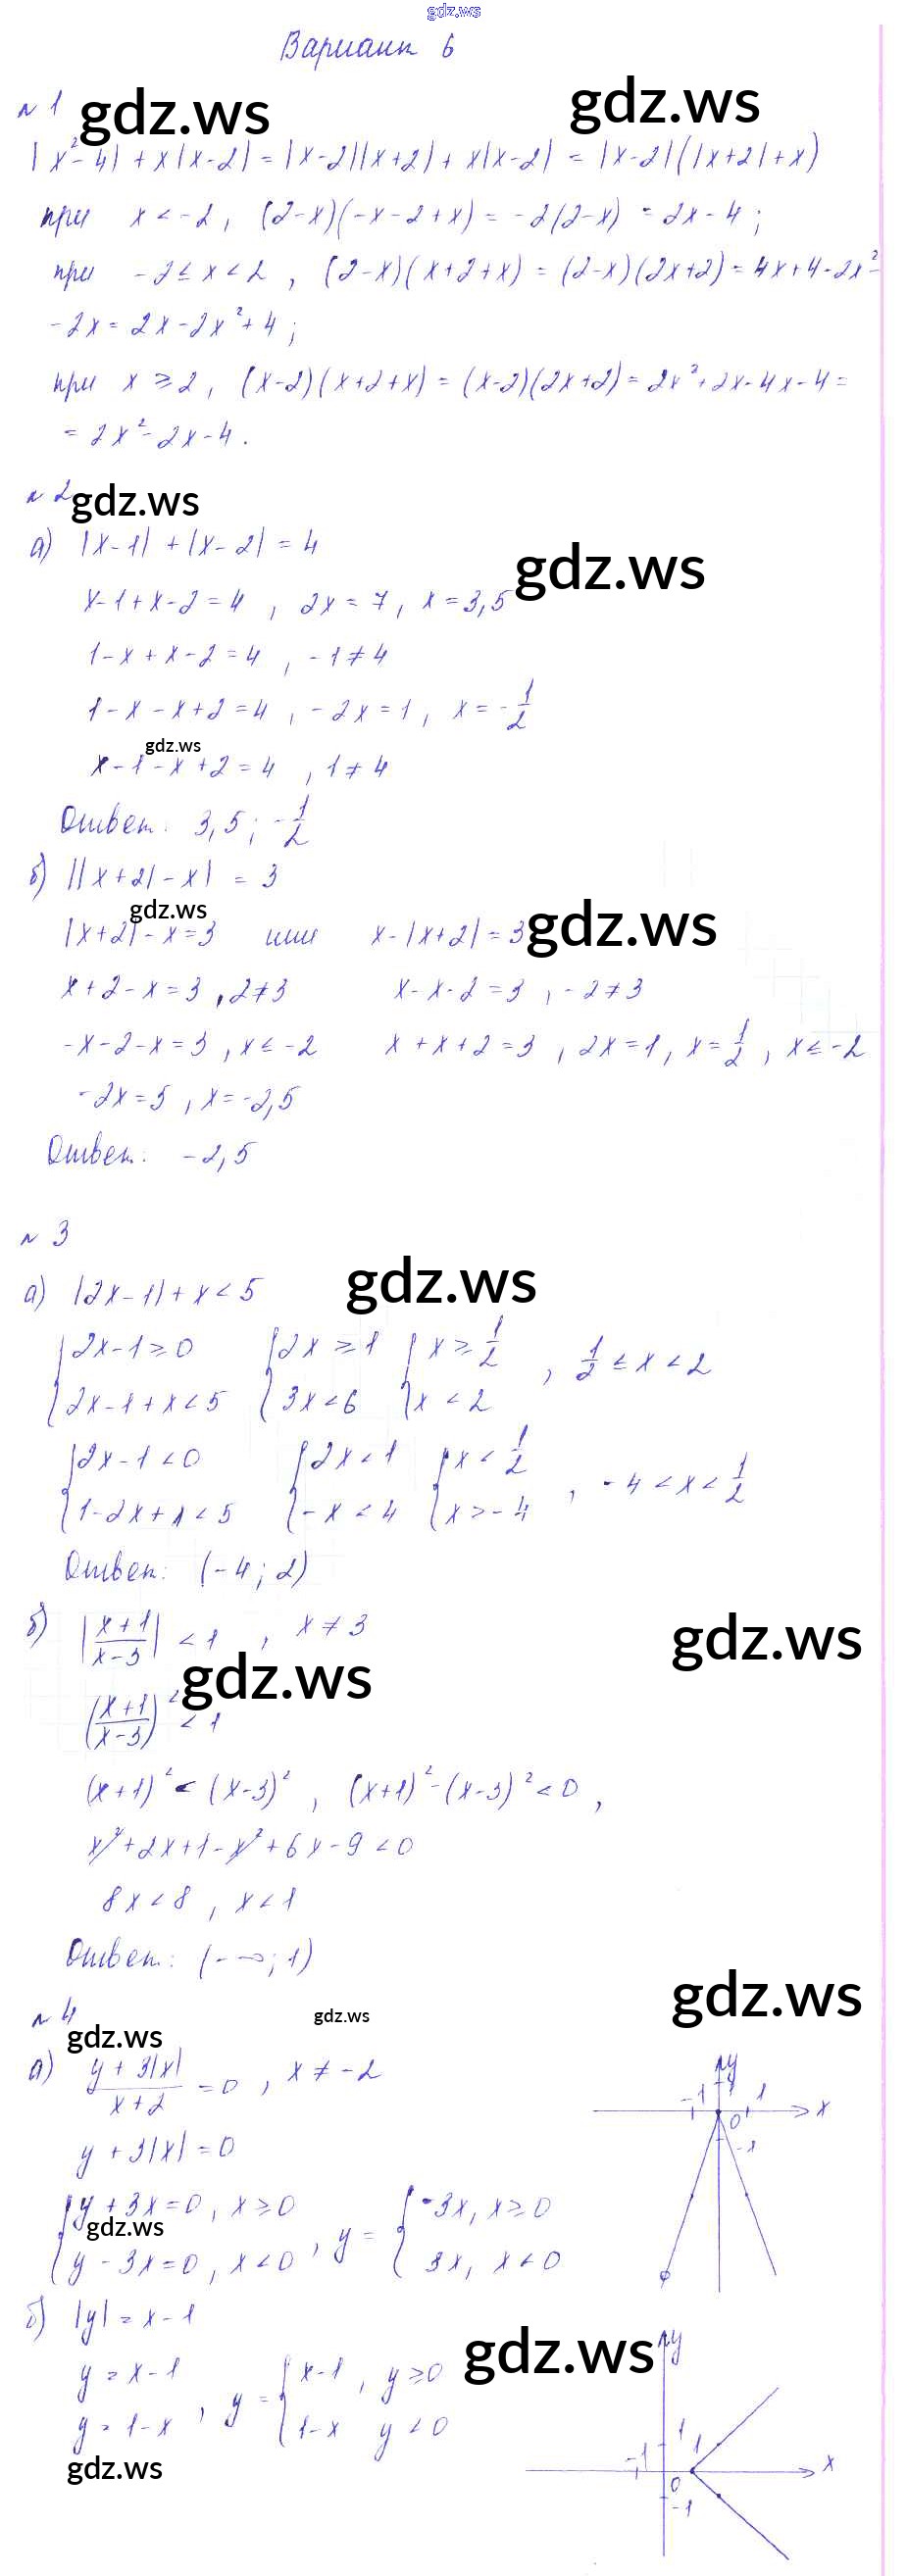 gdz.ws
Вариант 6
№ 1 gdz.ws gdz.ws
|x²-4|+x|x-2|=|x-2||x+2|+x|x-2|=|x-2|(|x+2|+x)
при x<-2, (2-x)(-x-2+x)=-2(2-x)=2x-4;
при -2≤x<2, (2-x)(x+2+x)=(2-x)(2x+2)=4x+4-2x²-
-2x=2x-2x²+4;
при x≥2, (x-2)(x+2+x)=(x-2)(2x+2)=2x²+2x-4x-4=
=2x²-2x-4.
№ 2 gdz.ws
а) |x-1|+|x-2|=4
gdz.ws
x-1+x-2=4, 2x=7, x=3,5
1-x+x-2=4, -1≠4
1-x-x+2=4, -2x=1, x=-1/2
gdz.ws
x-1-x+2=4, 1≠4
Ответ: 3,5; -1/2
б) ||x+2|-x|=3
gdz.ws gdz.ws
|x+2|-x=3 или x-|x+2|=3
x+2-x=3, 2≠3 x-x-2=3, -2≠3
-x-2-x=3, x≤-2 x+x+2=3, 2x=1, x=1/2, x≤-2
-2x=5, x=-2,5
Ответ: -2,5
№ 3
а) |2x-1|+x<5 gdz.ws
{2x-1≥0 {2x≥1 {x≥1/2, 1/2≤x<2
{2x-1+x<5 {3x<6 {x<2
{2x-1<0 {2x<1 {x<1/2, -4<x<1/2
{1-2x+x<5 {-x<4 {x>-4
Ответ: (-4; 2)
б) |(x+1)/(x-3)|<1, x≠3 gdz.ws
gdz.ws
((x+1)/(x-3))²<1
(x+1)²<(x-3)², (x+1)²-(x-3)²<0,
x²+2x+1-x²+6x-9<0
8x<8, x<1
Ответ: (-∞; 1)
gdz.ws
№ 4 gdz.ws
gdz.ws
а) (y+3|x|)/(x+2)=0, x≠-2
y+3|x|=0
{y+3x=0, x≥0
{y-3x=0, x<0, y={-3x, x≥0
{3x, x<0
gdz.ws
y
1
-1 1 x
0
-1
б) |y|=x-1
gdz.ws
y=x-1
y=1-x, y={x-1, y≥0
{1-x y<0
gdz.ws
y
1
-1 1 x
0
-1